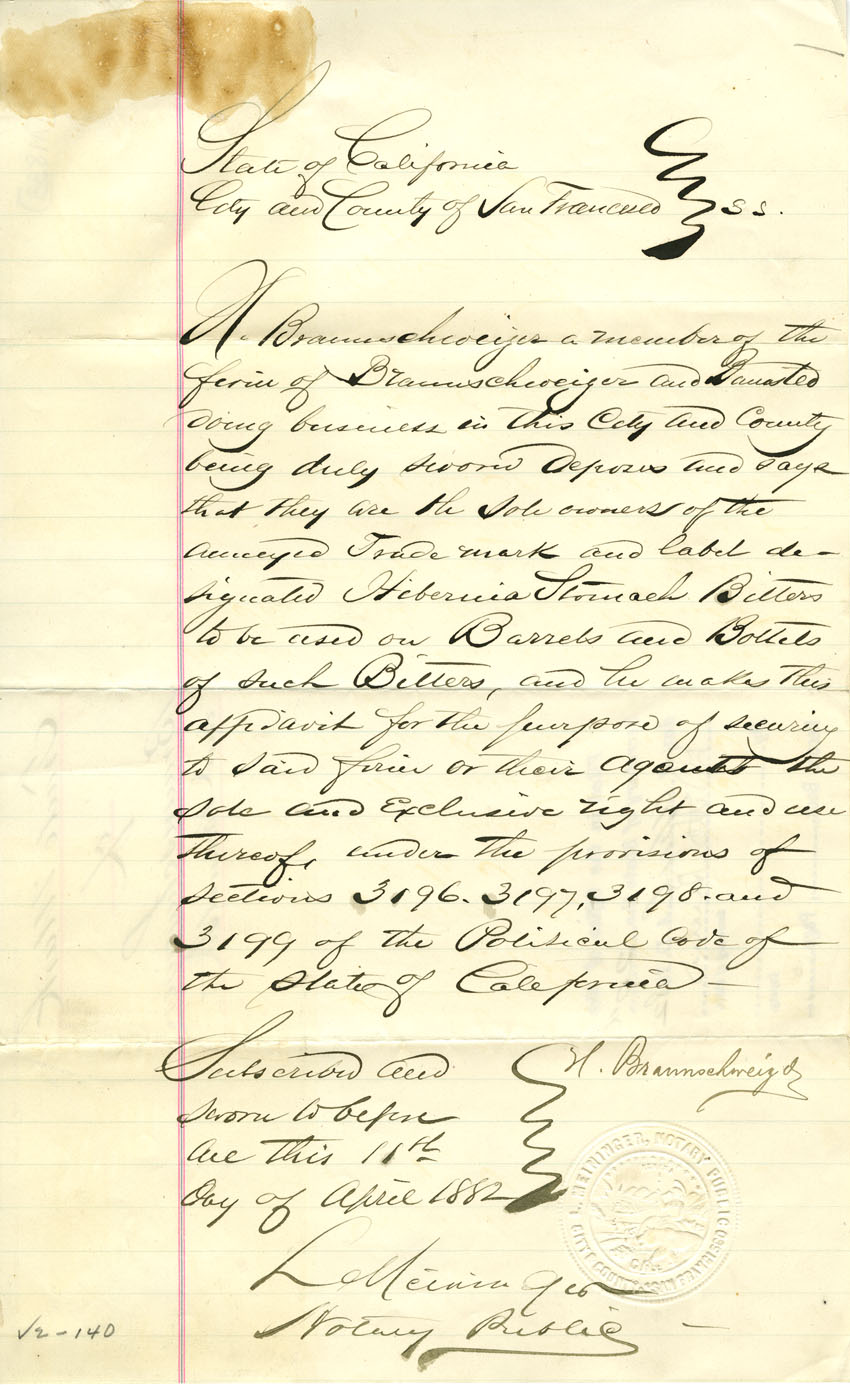 State of California
City and County of San Francisco } s s.
H. Braunschweiger a member of the
firm of Braunschweiger and Bumsted
doing business in this City and County
being duly sworn deposes and says
that they are the sole owners of the
annexed Trade mark and label de-
signated Hibernia Stomach Bitters
to be used on Barrels and Bottels
of such Bitters, and he makes this
affidavit for the purpose of securing
to said firm or their agents the
sole and Exclusive right and use
thereof, under the provisions of
sections 3196. 3197, 3198. and
3199 of the Political Code of
the State of California —
Subscribed and } H. Braunschweiger
sworn to before
me this 11th
Day of April 1882
L Meininger
Notary Public
L. MEININGER, NOTARY PUBLIC
CITY & COUNTY SAN FRANCISCO
CAL.
V2-140